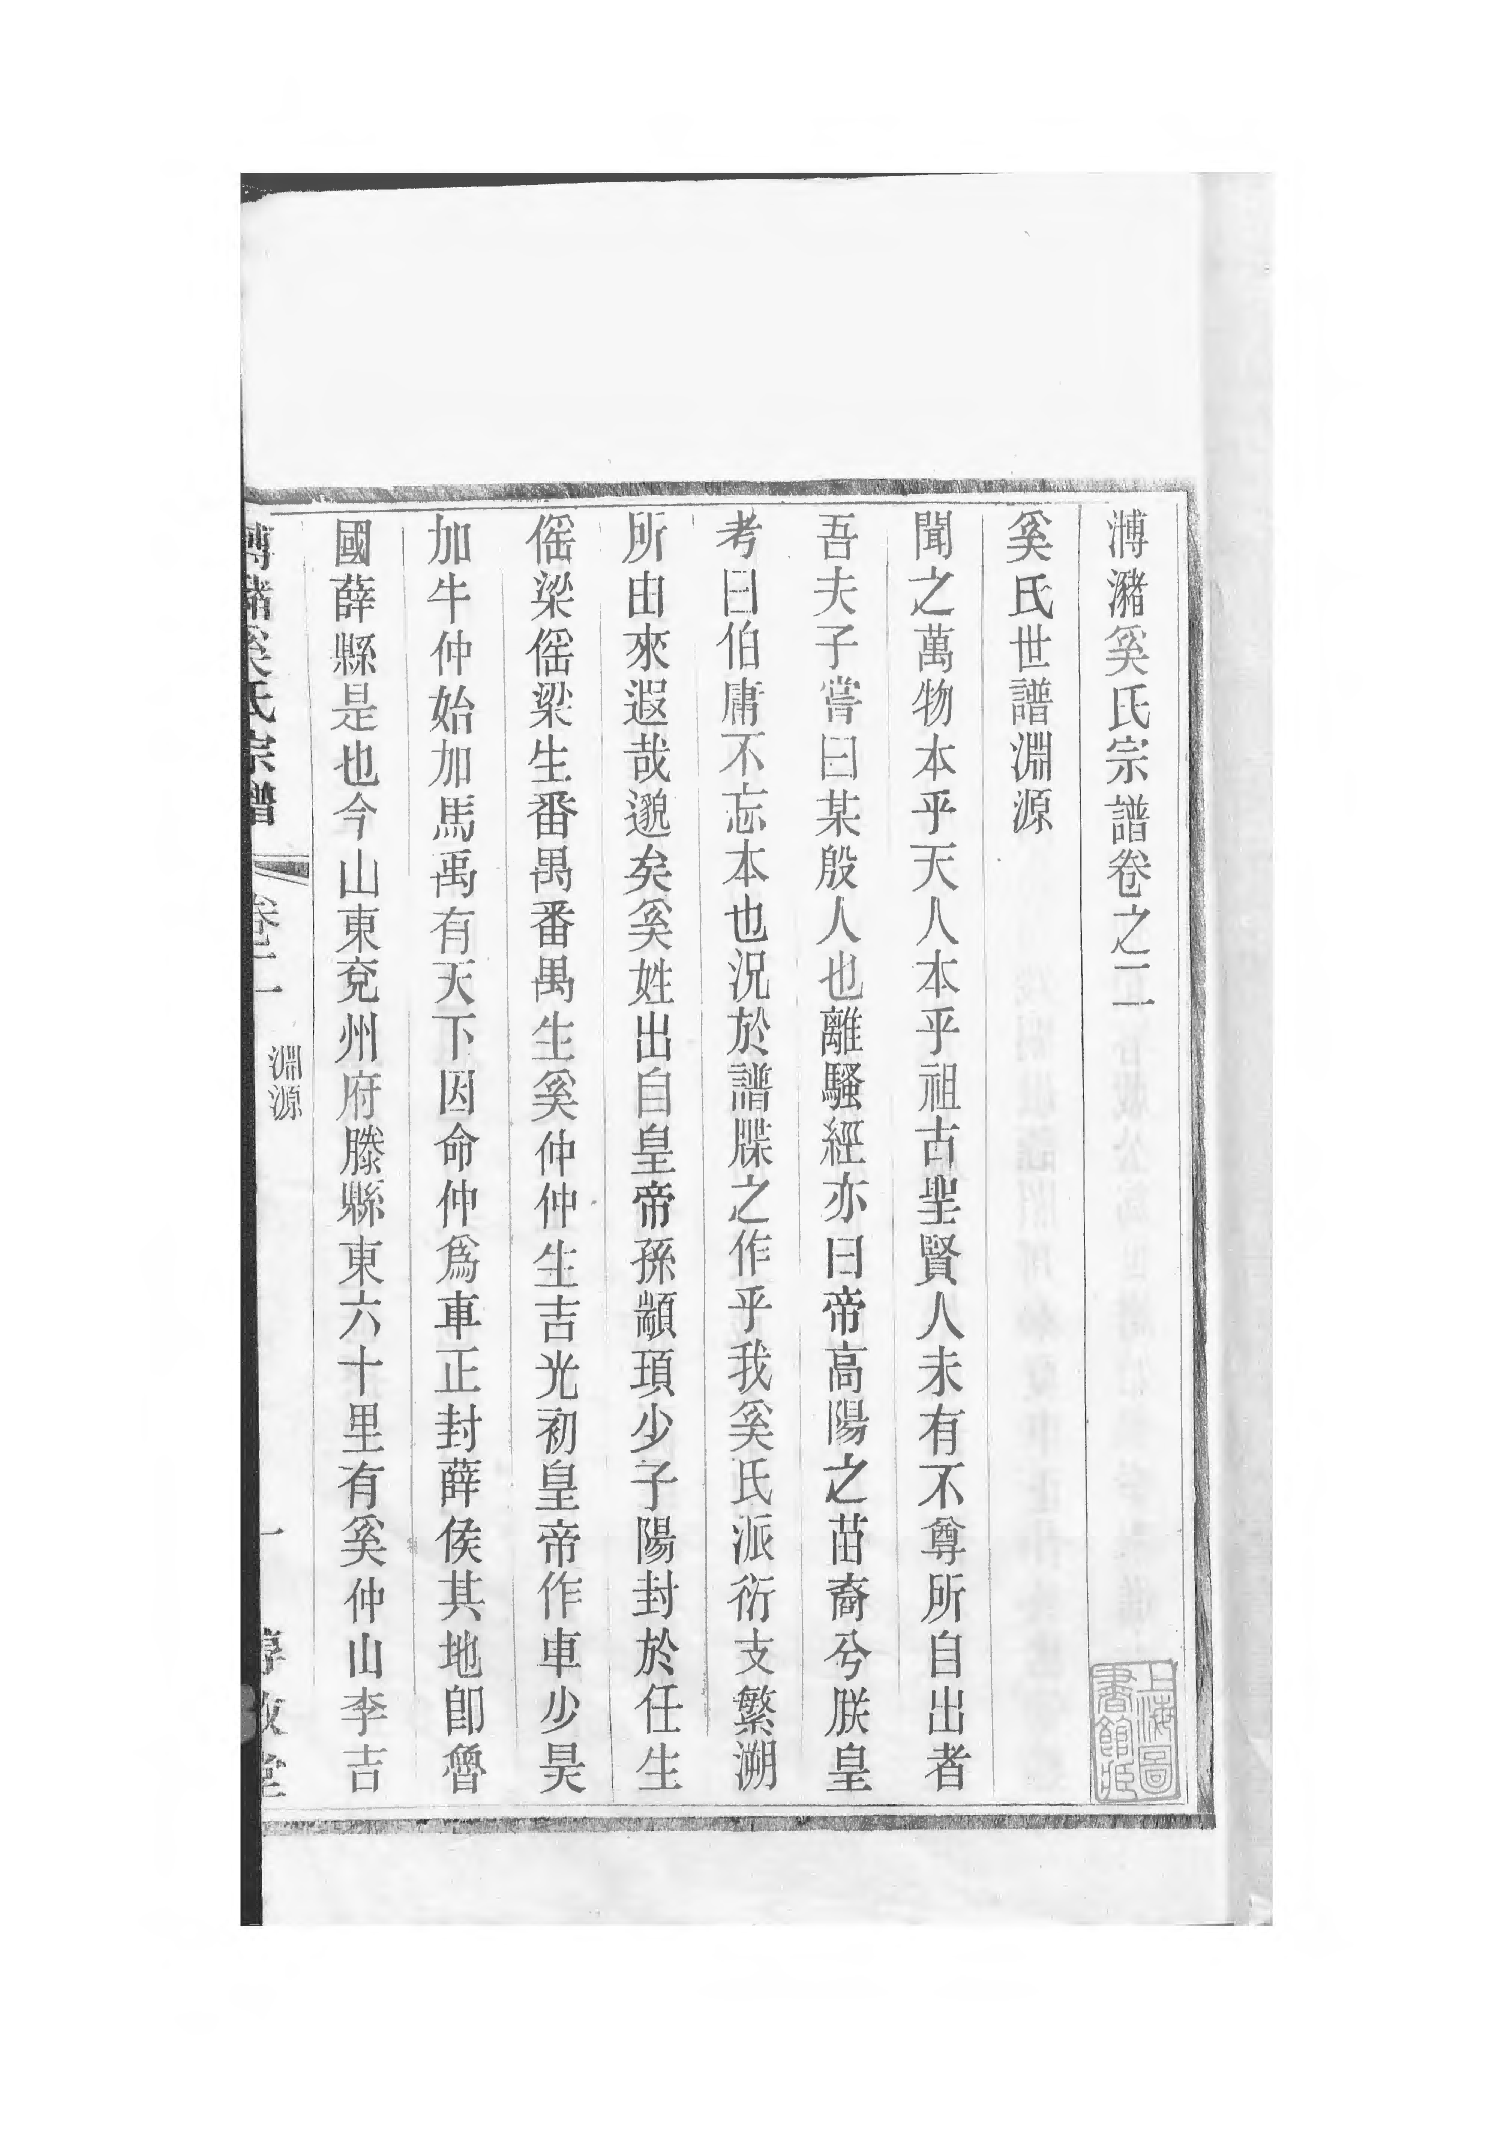 溥瀦奚氏宗譜卷之二
奚氏世譜淵源
聞之萬物本乎天人本乎祖古聖賢人未有不尊所自出者
吾夫子嘗曰某殷人也離騷經亦曰帝高陽之苗裔兮朕皇
考曰伯庸不忘本也況於譜牒之作乎我奚氏派衍支繁溯
所由來遐哉邈矣奚姓出自皇帝孫顓頊少子陽封於任生
傜梁傜梁生番禺番禺生奚仲仲生吉光初皇帝作車少昊
加牛仲始加馬禹有天下因命仲爲車正封薛侯其地卽魯
國薛縣是也今山東兗州府滕縣東六十里有奚仲山李吉
溥瀦奚氏宗譜
卷二
淵源
一
敦堂
上海圖書館